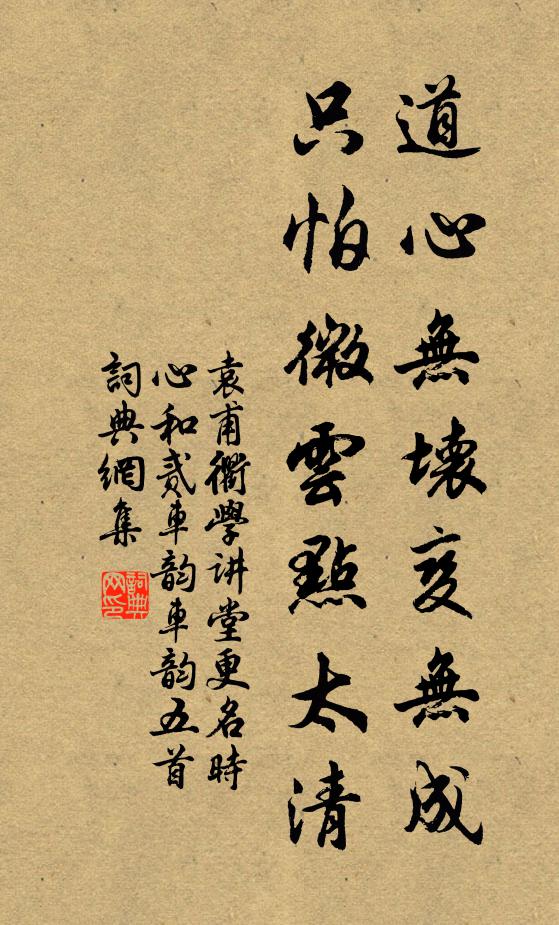 道心無壞变無成
只怕微雲點太清
袁甫衢學讲堂更名時
心和貳車韵車韵五首
詞典網集
詞典网印